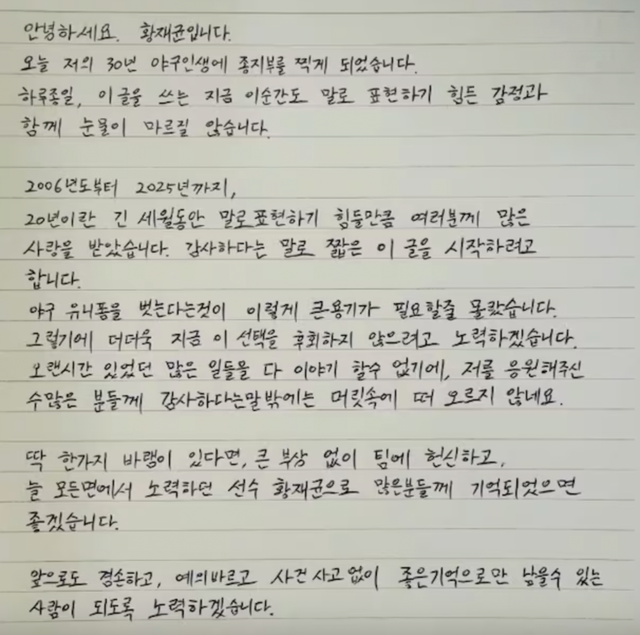 안녕하세요. 황재균입니다.
오늘 저의 30년 야구인생에 종지부를 찍게 되었습니다.
하루종일, 이 글을 쓰는 지금 이순간도 말로 표현하기 힘든 감정과
함께 눈물이 마르질 않습니다.
2006년도부터 2025년까지,
20년이란 긴 세월동안 말로표현하기 힘들만큼 여러분께 많은
사랑을 받았습니다. 감사하다는 말로 짧은 이 글을 시작하려고
합니다.
야구 유니폼을 벗는다는것이 이렇게 큰용기가 필요할줄 몰랐습니다.
그렇기에 더더욱 지금 이 선택을 후회하지 않으려고 노력하겠습니다.
오랜시간 있었던 많은 일들을 다 이야기 할수 없기에, 저를 응원해주신
수많은 분들께 감사하다는말 밖에는 머릿속에 떠 오르지 않네요.
딱 한가지 바램이 있다면, 큰 부상 없이 팀에 헌신하고,
늘 모든면에서 노력하던 선수 황재균으로 많은분들께 기억되었으면
좋겠습니다.
앞으로도 겸손하고, 예의바르고 사건사고없이 좋은기억으로만 남을수 있는
사람이 되도록 노력하겠습니다.